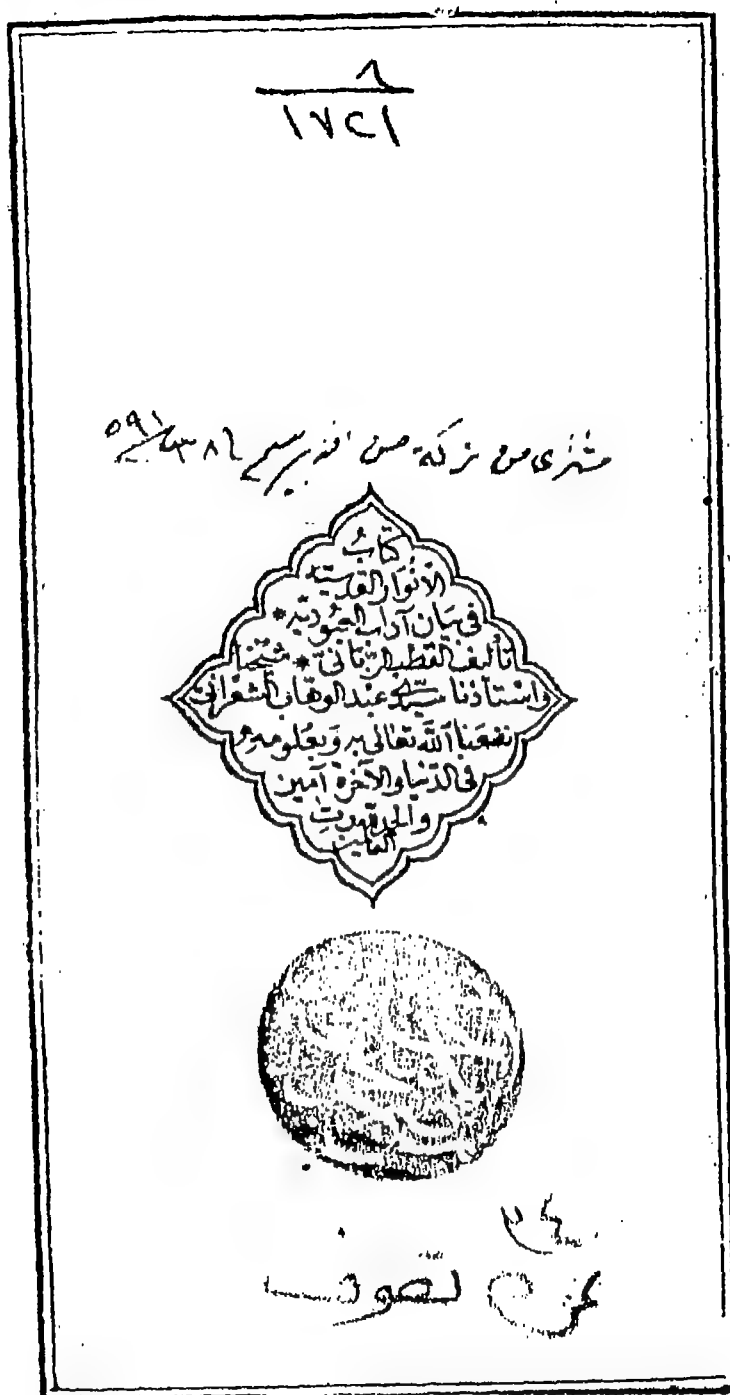 ٨
١٧٢١
مشترى من تركة حسن افندى
كتاب
الأنوار القدسية
فى بيان آداب العبودية *
تأليف القطب الربانى * شيخنا
وأستاذنا سيدى عبد الوهاب الشعرانى
نفعنا الله تعالى به وبعلومه
فى الدنيا والآخرة آمين
والحمد لله رب
العالمين
تصوف